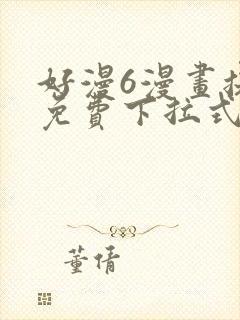 好漫6漫畫
免費下拉式
董倩